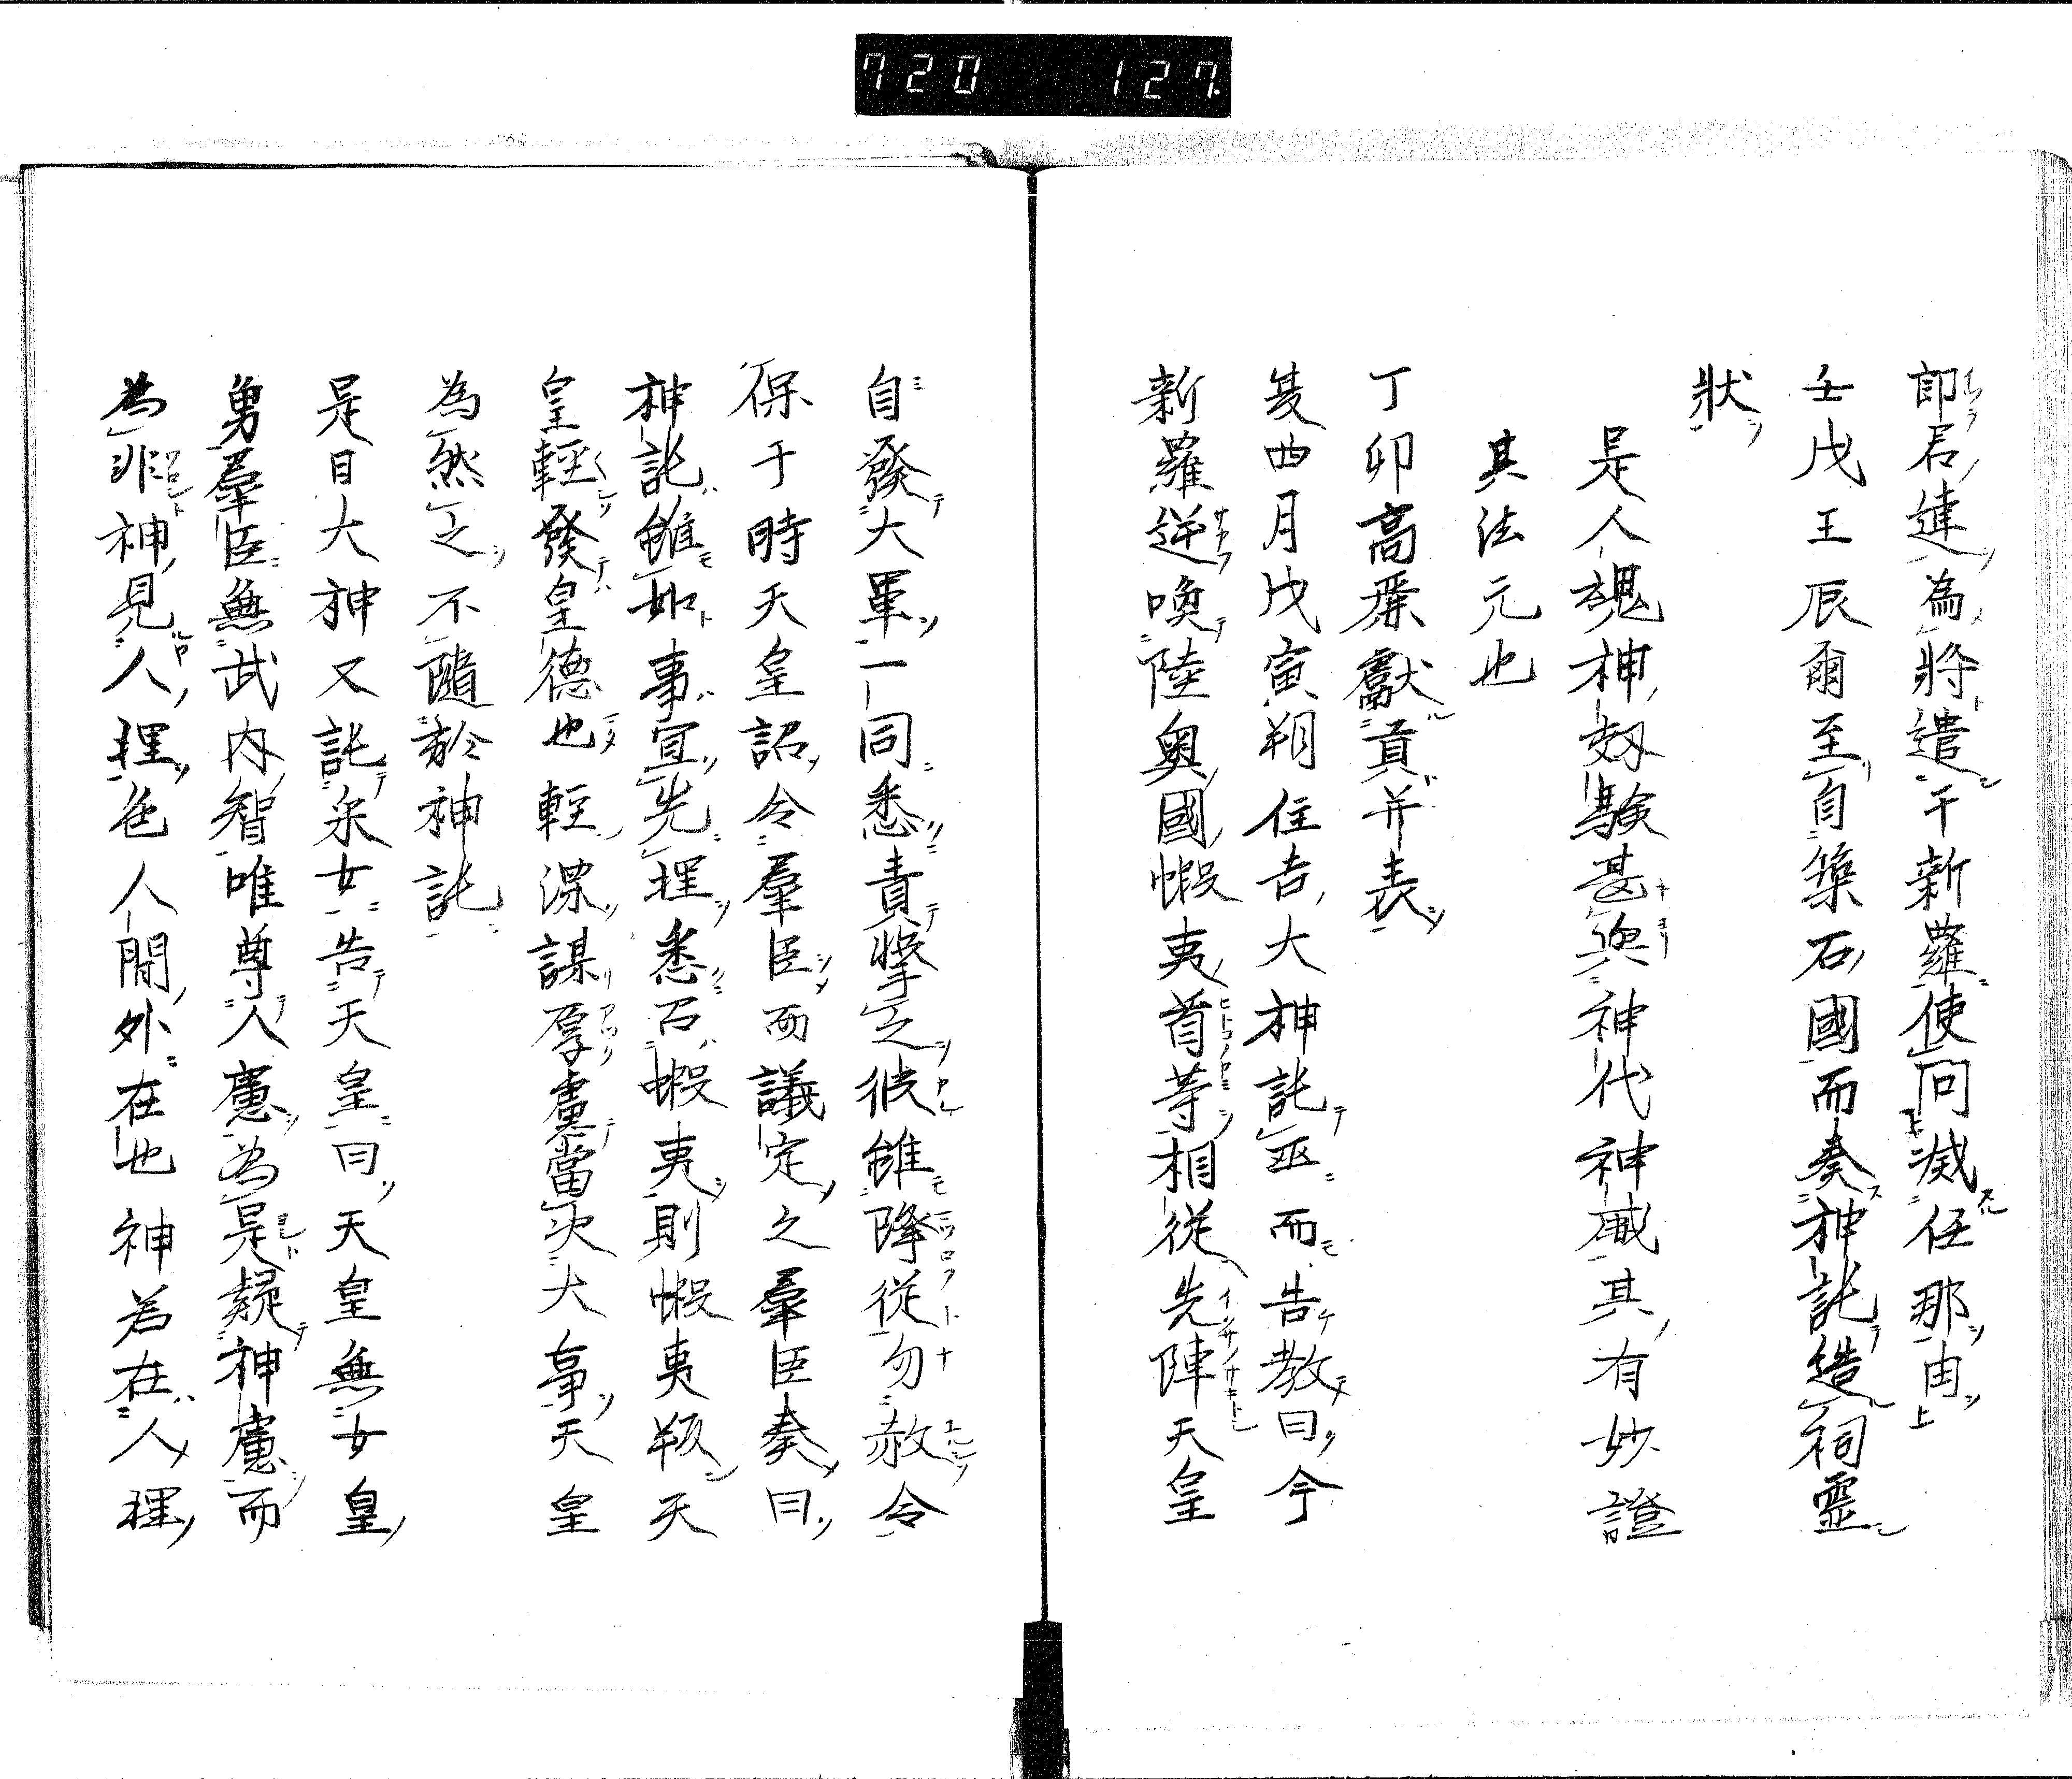 720 127
郎君連為將遣于新羅使問滅任那由
壬戌王辰爾至自築石國而奏神託造祠靈
狀
是人魂神奴驗甚與神代神威其有妙證
其法元也
丁卯高麗獻貢并表
夏四月戊寅朔住吉大神託巫而告教曰今
新羅逆喚陸奥國蝦夷首等相從先陣天皇
自發大軍一同悉責擊之彼雖降從勿赦令
保于時天皇詔令羣臣而議定之羣臣奏曰
神託雖如事宜先理悉召蝦夷則蝦夷叛天
皇輕發皇德也輕深謀厚慮當決大事天皇
為然之不隨於神託
是日大神又託采女告天皇曰天皇無女皇
勇羣臣無武内智唯尊人慮為是疑神慮而
為非神見人理色人間外在也神若在人理